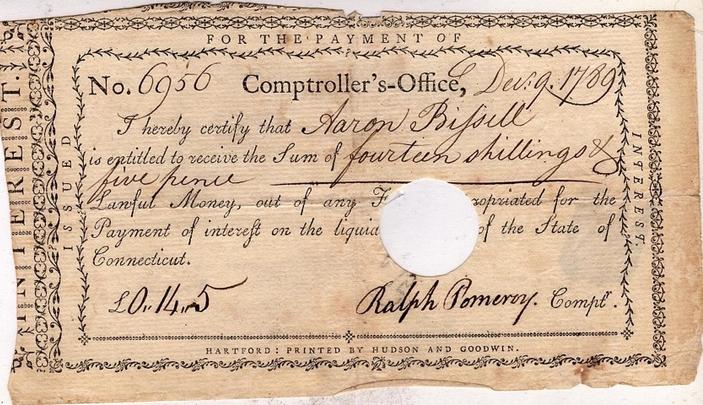 FOR THE PAYMENT OF
No. 6956 Comptroller's-Office, Dec: 9. 1789
I hereby certify that Aaron Bissell
is entitled to receive the Sum of fourteen shillings &
five pence
Lawful Money, out of any F opriated for the
Payment of interest on the liquid of the State of
Connecticut.
£0.. 14.. 5 Ralph Pomeroy. Comptr.
HARTFORD: PRINTED BY HUDSON AND GOODWIN.
ISSUED
INTEREST.
INTEREST.